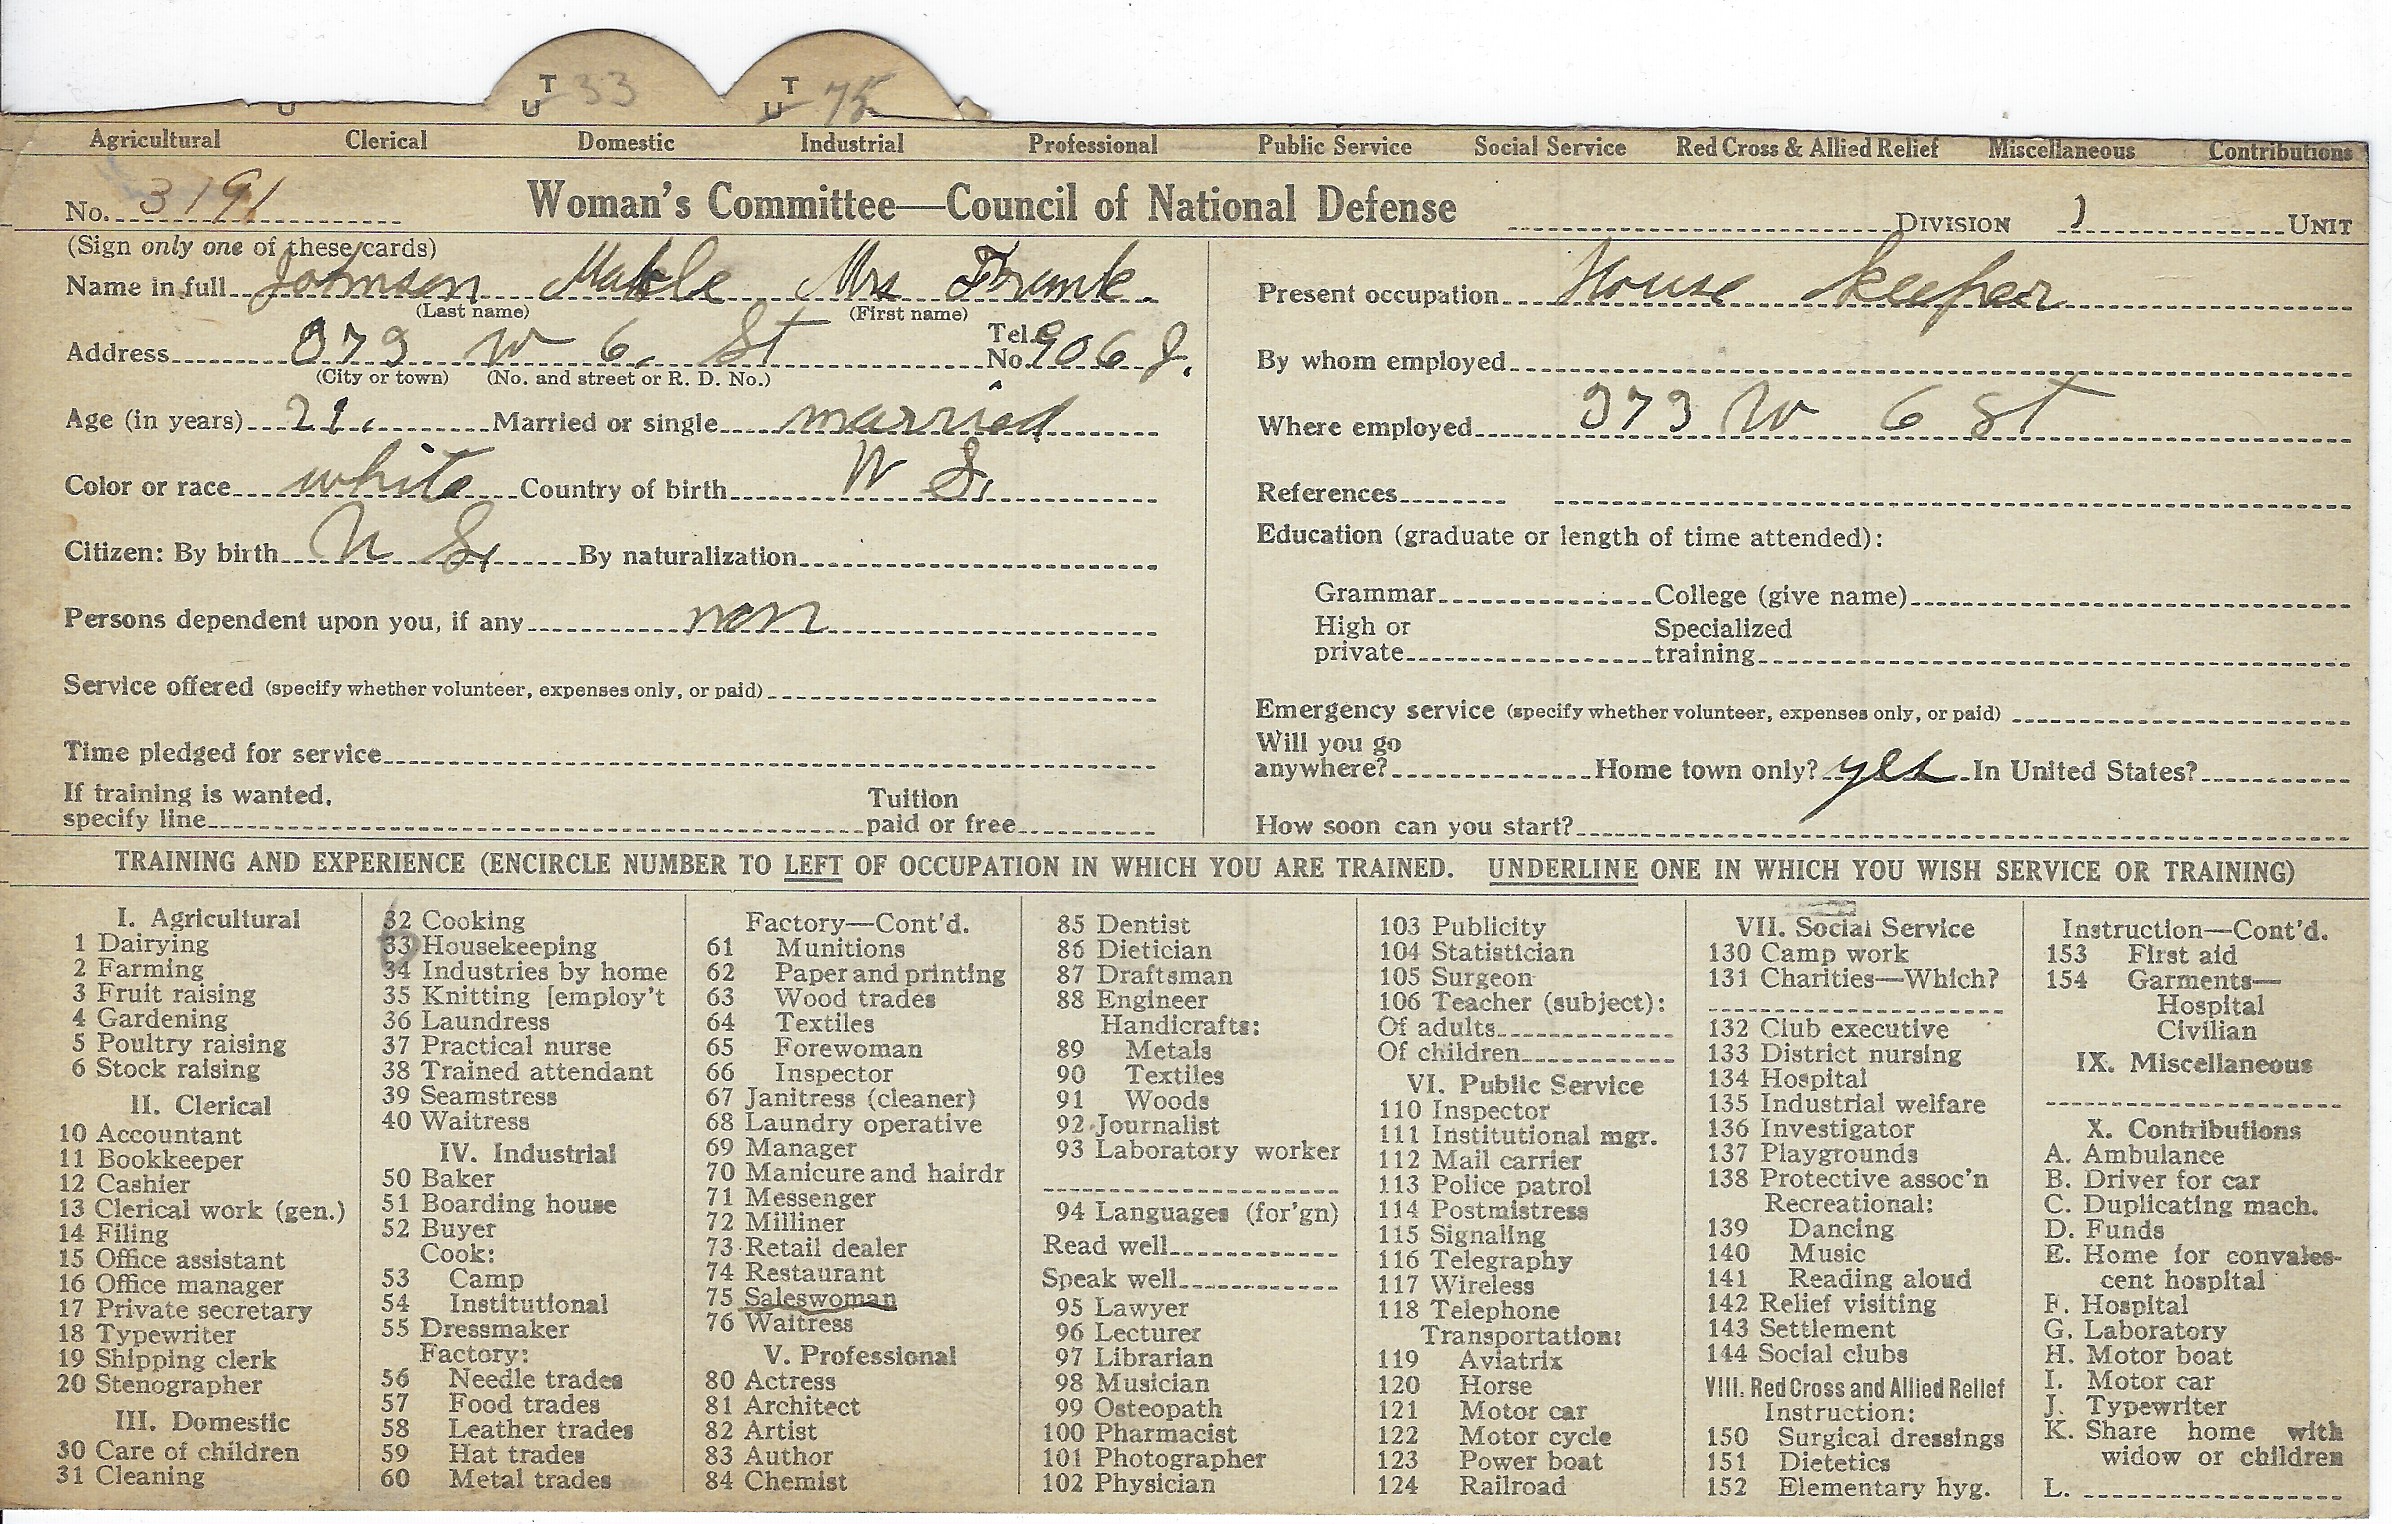 T
U 33
T
U 75
Agricultural Clerical Domestic Industrial Professional Public Service Social Service Red Cross & Allied Relief Miscellaneous Contributions
No. 3191
Woman's Committee—Council of National Defense
DIVISION 1 UNIT
(Sign only one of these cards)
Name in full Johnson Mable Mrs Frank
(Last name) (First name)
Address 373 W 6. St Tel. No. 906 J.
(City or town) (No. and street or R. D. No.)
Age (in years) 21. Married or single married
Color or race white Country of birth U S.
Citizen: By birth U S. By naturalization
Persons dependent upon you, if any non
Service offered (specify whether volunteer, expenses only, or paid)
Time pledged for service
If training is wanted, specify line Tuition paid or free
Present occupation House keeper
By whom employed
Where employed 373 W 6 St
References
Education (graduate or length of time attended):
Grammar College (give name)
High or private Specialized training
Emergency service (specify whether volunteer, expenses only, or paid)
Will you go anywhere? Home town only? yes In United States?
How soon can you start?
TRAINING AND EXPERIENCE (ENCIRCLE NUMBER TO LEFT OF OCCUPATION IN WHICH YOU ARE TRAINED. UNDERLINE ONE IN WHICH YOU WISH SERVICE OR TRAINING)
I. Agricultural
1 Dairying
2 Farming
3 Fruit raising
4 Gardening
5 Poultry raising
6 Stock raising
II. Clerical
10 Accountant
11 Bookkeeper
12 Cashier
13 Clerical work (gen.)
14 Filing
15 Office assistant
16 Office manager
17 Private secretary
18 Typewriter
19 Shipping clerk
20 Stenographer
III. Domestic
30 Care of children
31 Cleaning
32 Cooking
33 Housekeeping
34 Industries by home
35 Knitting [employ't
36 Laundress
37 Practical nurse
38 Trained attendant
39 Seamstress
40 Waitress
IV. Industrial
50 Baker
51 Boarding house
52 Buyer
Cook:
53 Camp
54 Institutional
55 Dressmaker
Factory:
56 Needle trades
57 Food trades
58 Leather trades
59 Hat trades
60 Metal trades
Factory—Cont'd.
61 Munitions
62 Paper and printing
63 Wood trades
64 Textiles
65 Forewoman
66 Inspector
67 Janitress (cleaner)
68 Laundry operative
69 Manager
70 Manicure and hairdr
71 Messenger
72 Milliner
73 Retail dealer
74 Restaurant
75 Saleswoman
76 Waitress
V. Professional
80 Actress
81 Architect
82 Artist
83 Author
84 Chemist
85 Dentist
86 Dietician
87 Draftsman
88 Engineer
Handicrafts:
89 Metals
90 Textiles
91 Woods
92 Journalist
93 Laboratory worker
94 Languages (for'gn)
Read well
Speak well
95 Lawyer
96 Lecturer
97 Librarian
98 Musician
99 Osteopath
100 Pharmacist
101 Photographer
102 Physician
103 Publicity
104 Statistician
105 Surgeon
106 Teacher (subject):
Of adults
Of children
VI. Public Service
110 Inspector
111 Institutional mgr.
112 Mail carrier
113 Police patrol
114 Postmistress
115 Signaling
116 Telegraphy
117 Wireless
118 Telephone
Transportation:
119 Aviatrix
120 Horse
121 Motor car
122 Motor cycle
123 Power boat
124 Railroad
VII. Social Service
130 Camp work
131 Charities—Which?
132 Club executive
133 District nursing
134 Hospital
135 Industrial welfare
136 Investigator
137 Playgrounds
138 Protective assoc'n
Recreational:
139 Dancing
140 Music
141 Reading aloud
142 Relief visiting
143 Settlement
144 Social clubs
VIII. Red Cross and Allied Relief
Instruction:
150 Surgical dressings
151 Dietetics
152 Elementary hyg.
Instruction—Cont'd.
153 First aid
154 Garments—
Hospital
Civilian
IX. Miscellaneous
X. Contributions
A. Ambulance
B. Driver for car
C. Duplicating mach.
D. Funds
E. Home for convales-
cent hospital
F. Hospital
G. Laboratory
H. Motor boat
I. Motor car
J. Typewriter
K. Share home with
widow or children
L.